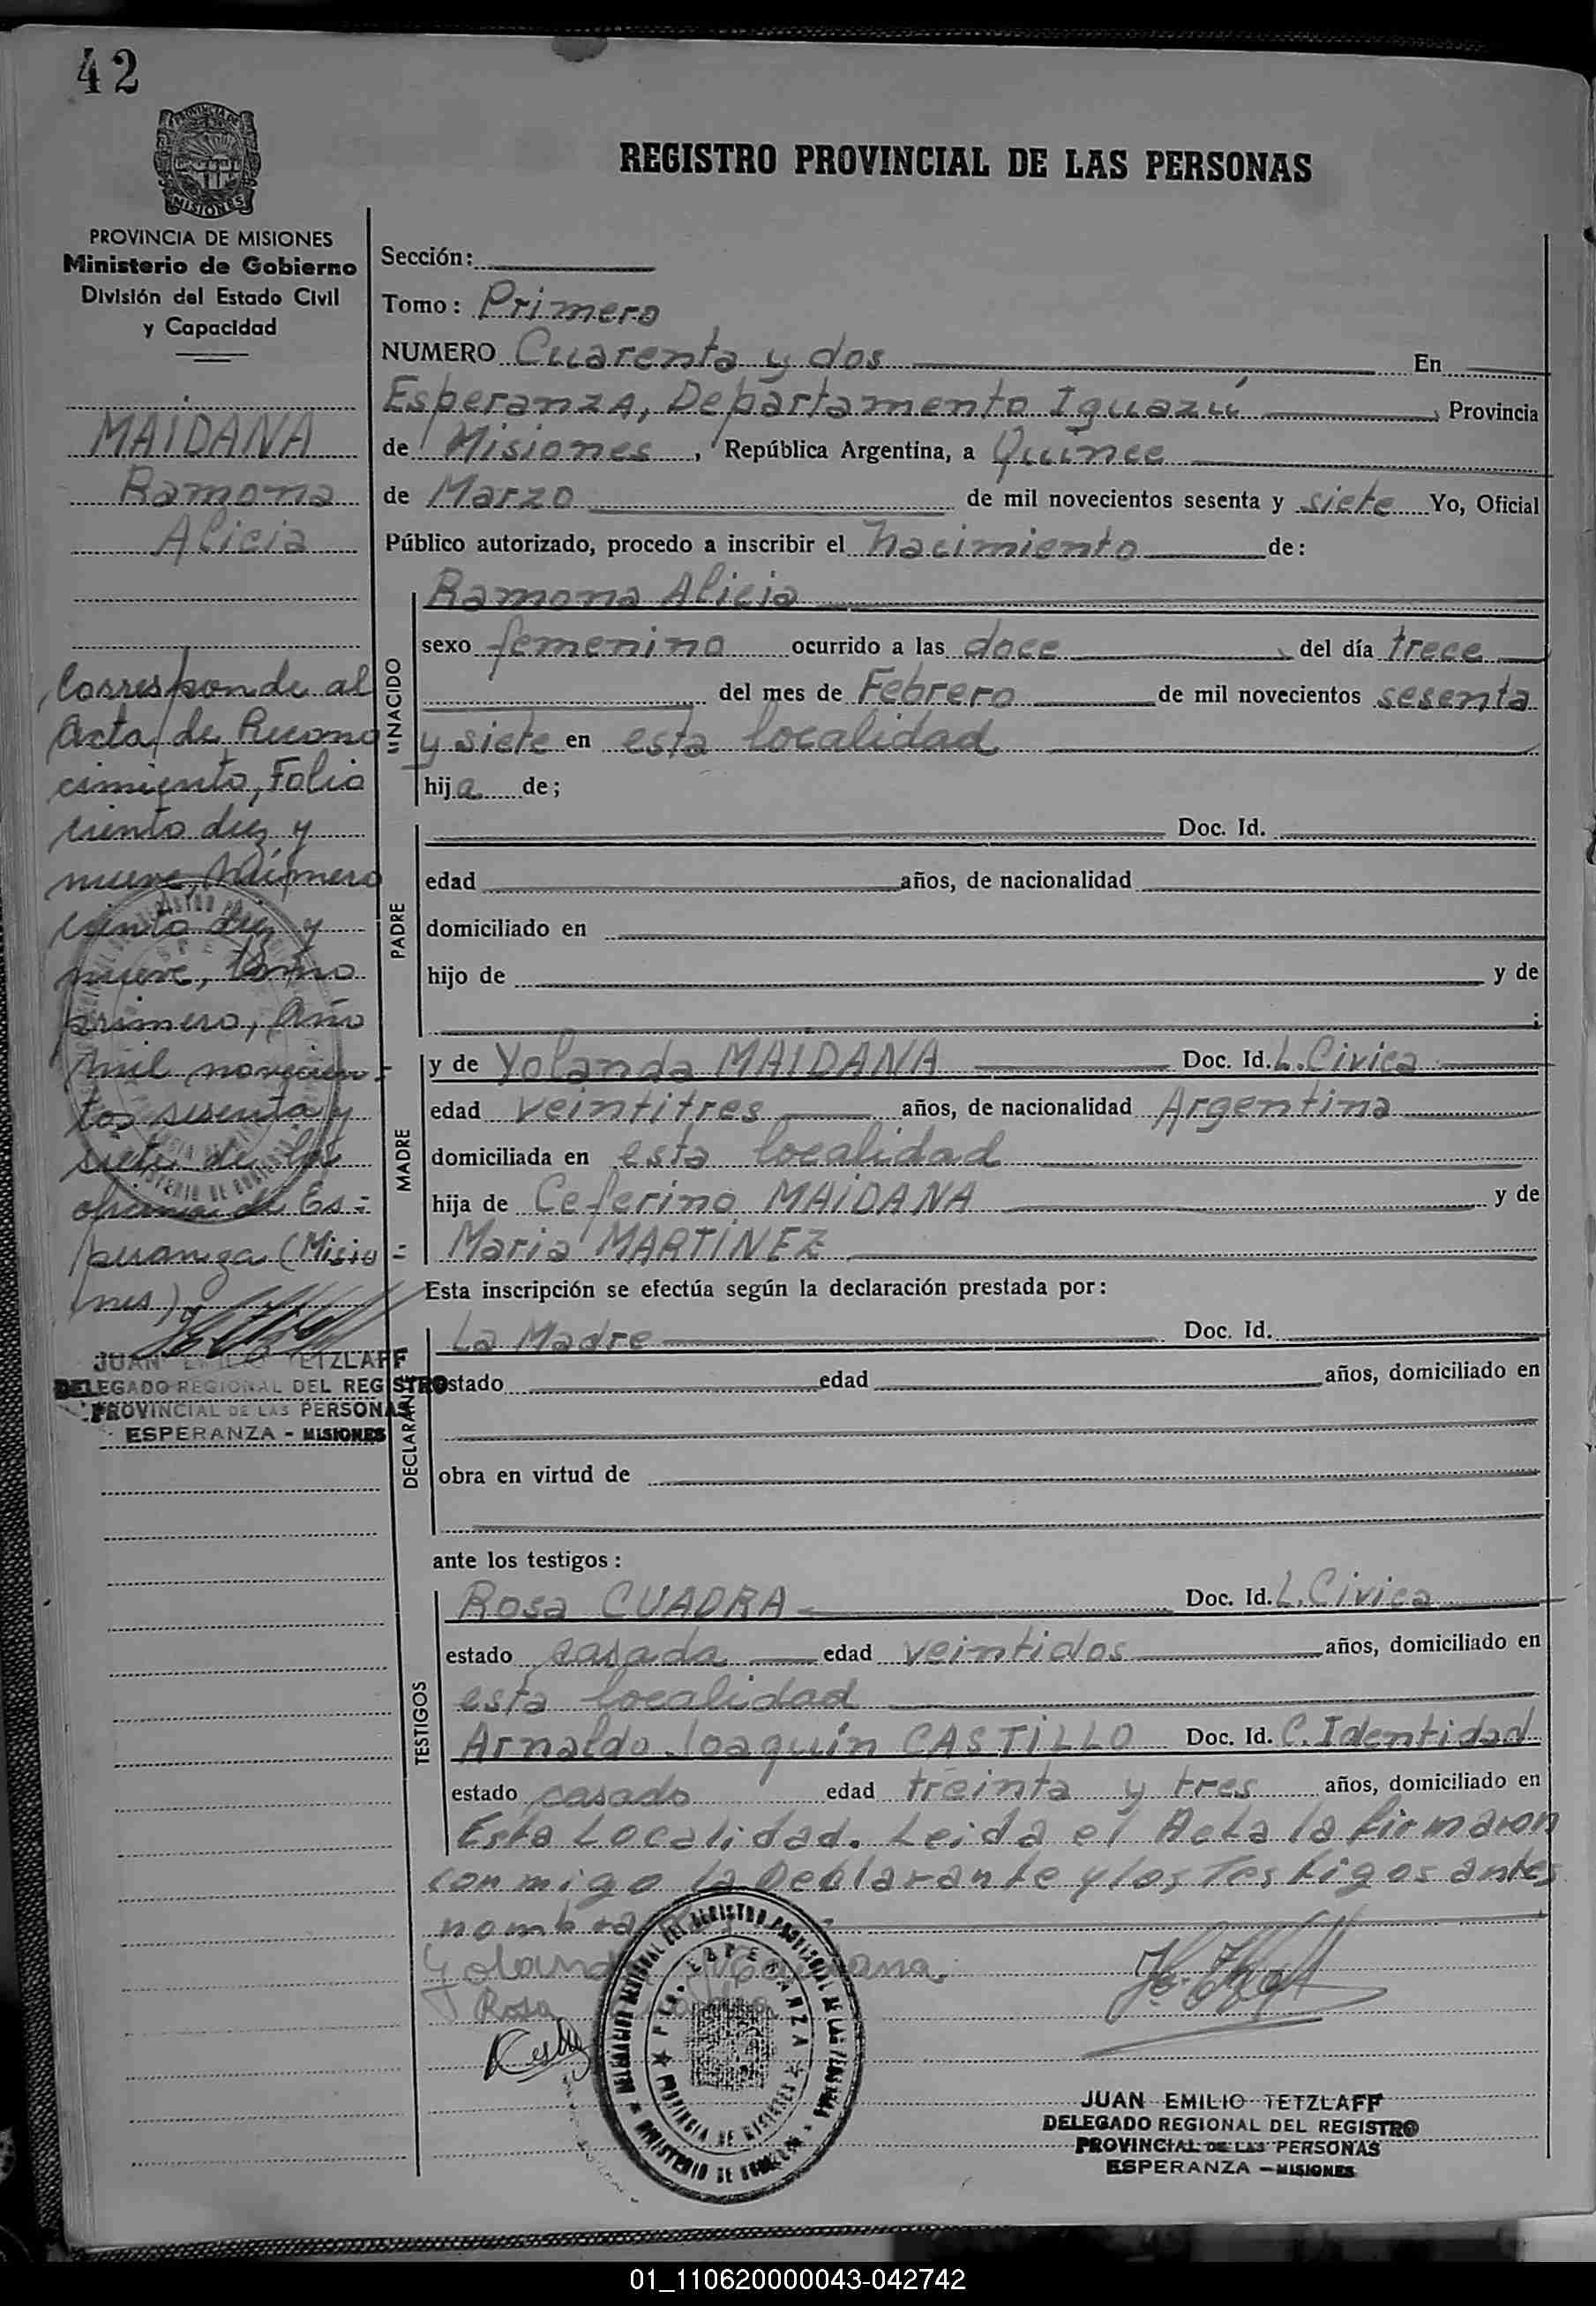 42
PROVINCIA DE MISIONES
REGISTRO PROVINCIAL DE LAS PERSONAS
PROVINCIA DE MISIONES
Ministerio de Gobierno
División del Estado Civil
y Capacidad
MAIDANA
Ramona
Alicia
Corresponde al
Acta de Recono
cimiento, Folio
ciento diez y
nueve, Número
ciento diez y
nueve, tomo
primero, Año
mil novecien-
tos sesenta y
siete de la
oficina de Es-
peranza (Misio-
nes)
JUAN EMILIO TETZLAFF
DELEGADO REGIONAL DEL REGISTRO
PROVINCIAL DE LAS PERSONAS
ESPERANZA - MISIONES
Sección:
Tomo: Primero
NUMERO Cuarenta y dos En
Esperanza, Departamento Iguazú, Provincia
de Misiones, República Argentina, a Quince
de Marzo de mil novecientos sesenta y siete Yo, Oficial
Público autorizado, procedo a inscribir el nacimiento de:
NACIDO
Ramona Alicia
sexo femenino ocurrido a las doce del día trece
del mes de Febrero de mil novecientos sesenta
y siete en esta localidad
hija de;
PADRE
Doc. Id.
edad años, de nacionalidad
domiciliado en
hijo de y de
;
MADRE
y de Yolanda MAIDANA Doc. Id. L. Civica
edad veintitres años, de nacionalidad Argentina
domiciliada en esta localidad
hija de Ceferino MAIDANA y de
Maria MARTINEZ
Esta inscripción se efectúa según la declaración prestada por:
La Madre Doc. Id.
estado edad años, domiciliado en
obra en virtud de
ante los testigos:
TESTIGOS
Rosa CUADRA Doc. Id. L. Civica
estado casada edad veintidos años, domiciliado en
esta localidad
Arnaldo Joaquin CASTILLO Doc. Id. C. Identidad
estado casado edad treinta y tres años, domiciliado en
Esta Localidad. Leida el Acta la firmaron
conmigo la Declarante y los Testigos antes
Rosa
DELEGACION REGIONAL DEL REGISTRO PROVINCIAL DE LAS PERSONAS
PTO. ESPERANZA
PROVINCIA DE MISIONES
MINISTERIO DE GOBIERNO
JUAN EMILIO TETZLAFF
DELEGADO REGIONAL DEL REGISTRO
PROVINCIAL DE LAS PERSONAS
ESPERANZA - MISIONES
01_110620000043-042742